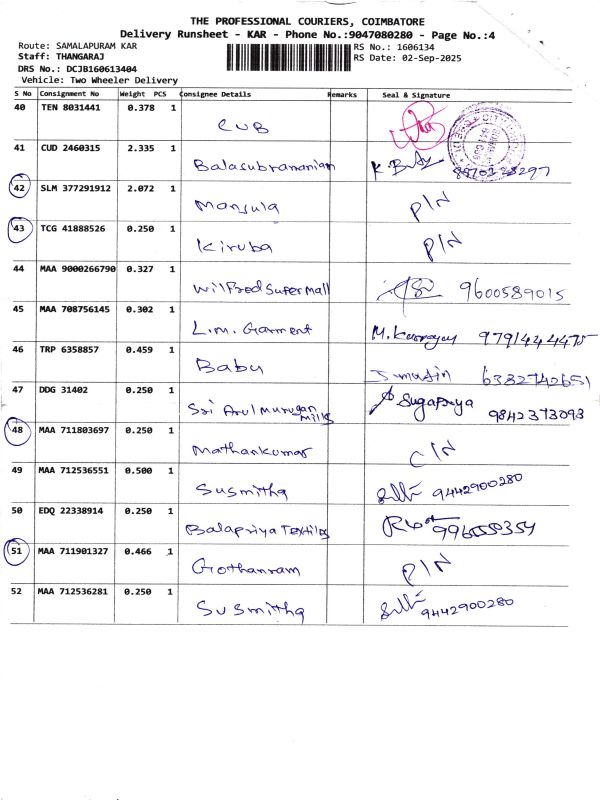 THE PROFESSIONAL COURIERS, COIMBATORE
Delivery Runsheet - KAR - Phone No.:9047080280 - Page No.:4
Route: SAMALAPURAM KAR RS No.: 1606134
Staff: THANGARAJ RS Date: 02-Sep-2025
DRS No.: DCJB160613404
Vehicle: Two Wheeler Delivery
S No Consignment No Weight PCS Consignee Details Remarks Seal & Signature
40 TEN 8031441 0.378 1 CUB
41 CUD 2460315 2.335 1 Balasubramanian
42 SLM 377291912 2.072 1 Manjula P/N
43 TCG 41888526 0.250 1 Kiruba P/N
44 MAA 9000266790 0.327 1 Wilfred Super Mall 9600589015
45 MAA 708756145 0.302 1 L.M. Garment 9791444475
46 TRP 6358857 0.459 1 Babu 6382742651
47 DDG 31402 0.250 1 Sri Arul Murugan Mills Sugapriya 9842373093
48 MAA 711803697 0.250 1 Mathankumar C/N
49 MAA 712536551 0.500 1 Susmitha 9442900280
50 EDQ 22338914 0.250 1 Balapriya Textiles
51 MAA 711901327 0.466 1 Gothanram P/N
52 MAA 712536281 0.250 1 Susmitha 9442900280